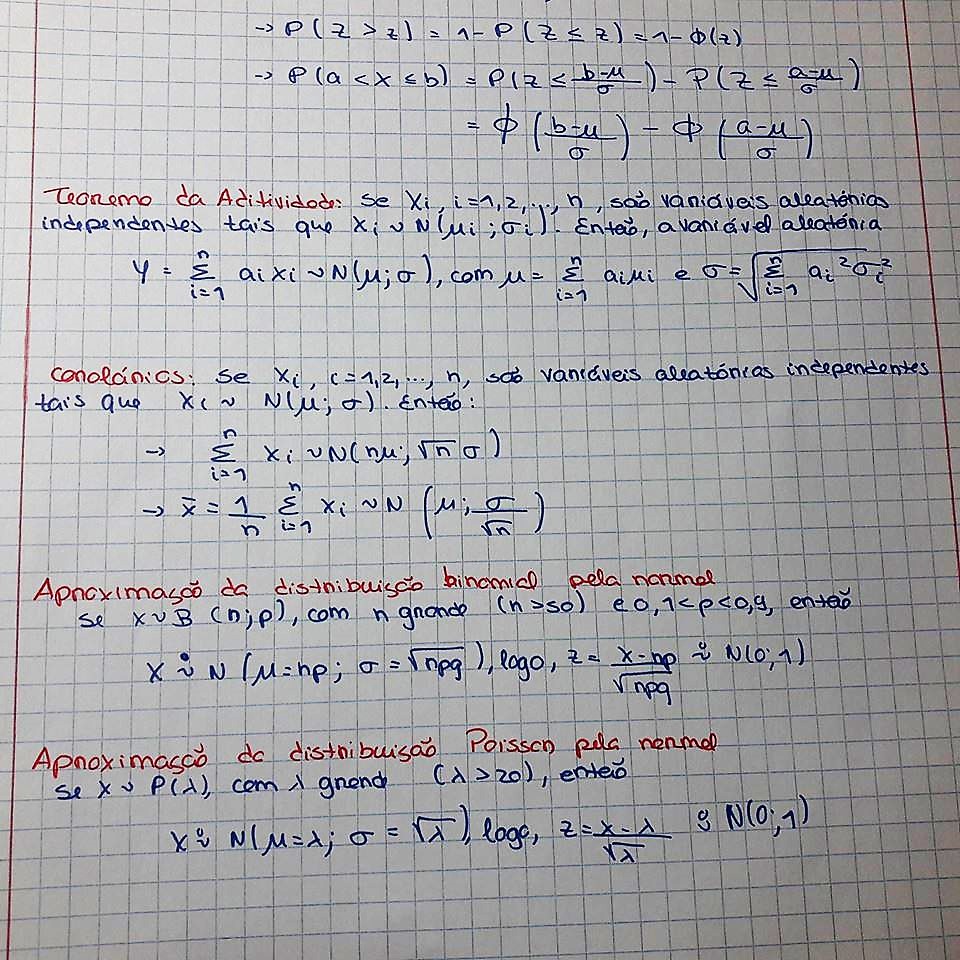 → P(Z > z) = 1 - P(Z ≤ z) = 1 - Φ(z)
→ P(a < X ≤ b) = P(Z ≤ (b-μ)/σ) - P(Z ≤ (a-μ)/σ)
= Φ((b-μ)/σ) - Φ((a-μ)/σ)
Teorema da Aditividade: Se Xi, i=1,2,...,n, são variáveis aleatórias
independentes tais que Xi ~ N(μi; σi). Então, a variável aleatória
Y = Σ_{i=1}^{n} ai Xi ~ N(μ; σ), com μ = Σ_{i=1}^{n} ai μi e σ = √(Σ_{i=1}^{n} ai² σi²)
Corolários: Se Xi, i=1,2,...,n, são variáveis aleatórias independentes
tais que Xi ~ N(μ; σ). Então:
→ Σ_{i=1}^{n} Xi ~ N(nμ; √n σ)
→ X̄ = 1/n Σ_{i=1}^{n} Xi ~ N(μ; σ/√n)
Aproximação da distribuição binomial pela normal
Se X ~ B(n; p), com n grande (n > 50) e 0,1 < p < 0,9, então
X ~° N(μ = np; σ = √(npq)), logo, Z = (X - np)/√(npq) ~° N(0; 1)
Aproximação da distribuição Poisson pela normal
Se X ~ P(λ), com λ grand (λ > 20), então
X ~° N(μ = λ; σ = √λ), logo, Z = (X - λ)/√λ ~° N(0; 1)